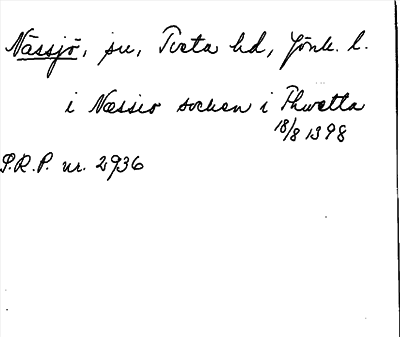 Nässjö, sn, Tveta hd, Jönk. l.
i Næssio socken i Thwetta
18/8 1398
S.R.P. nr. 2936